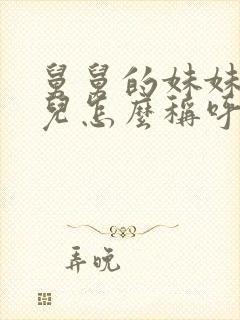 舅舅的妹妹
兒怎麼稱呼
弄晚